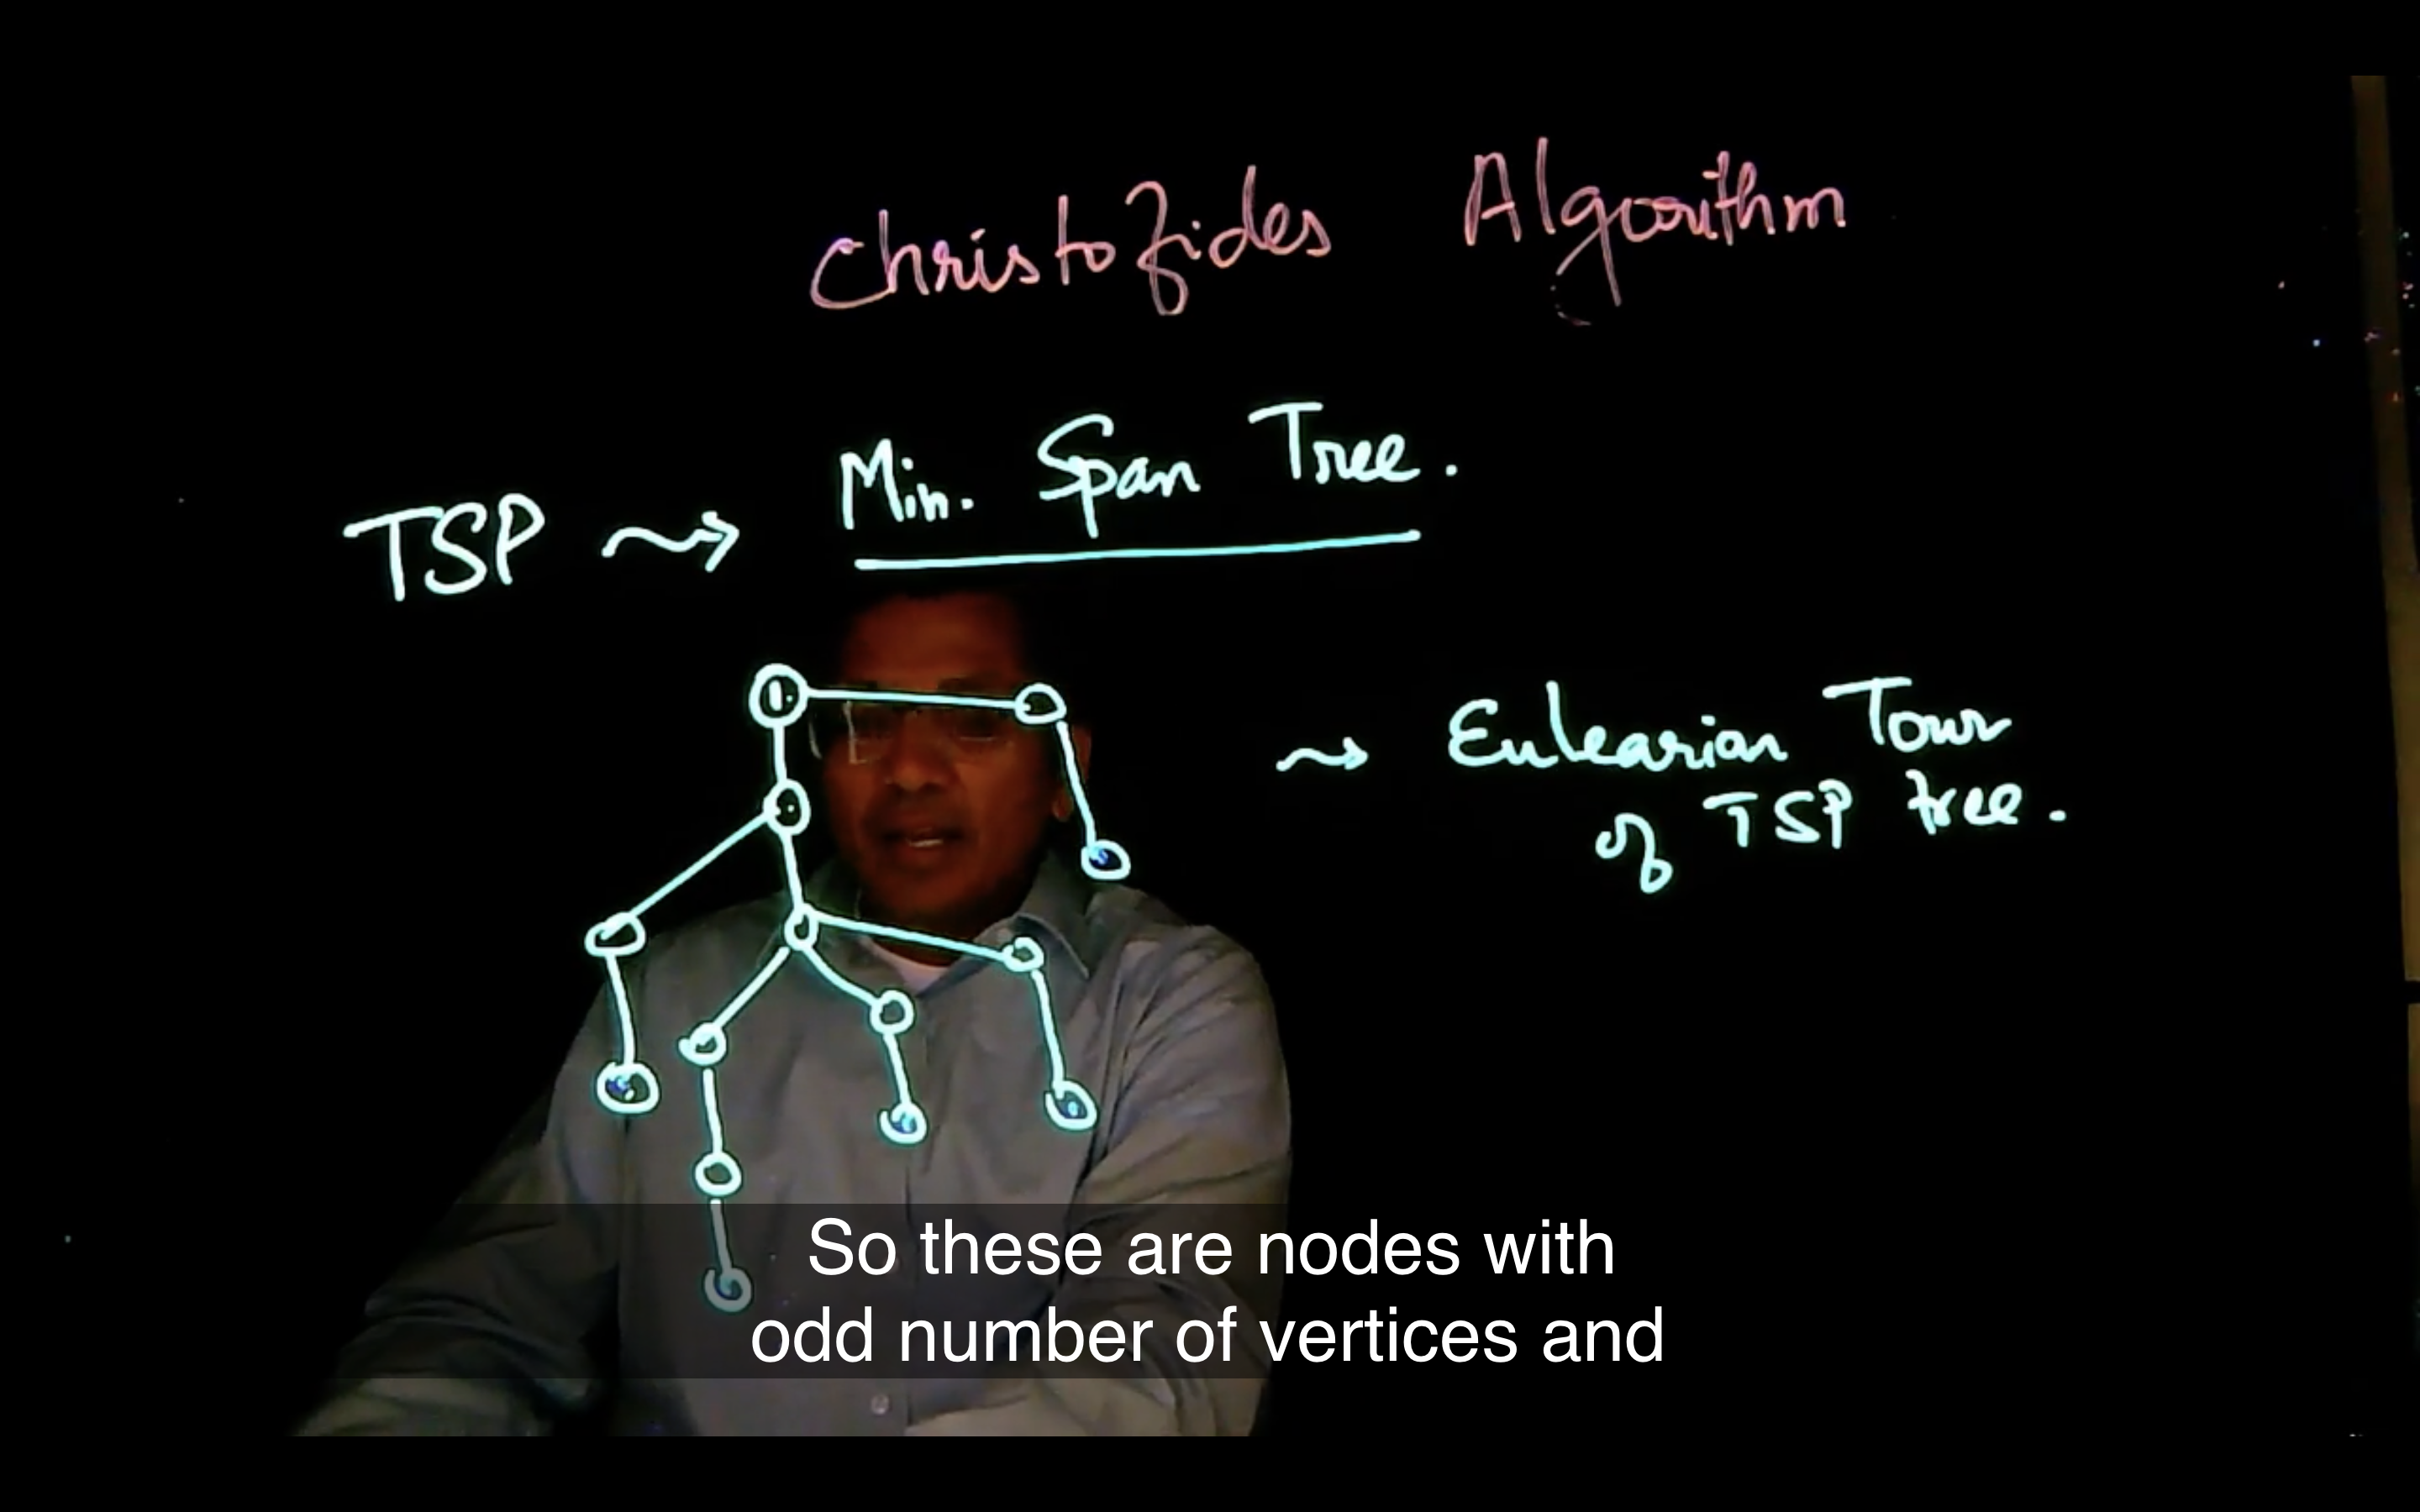 Christofides Algorithm
TSP Min. Span Tree.
1
Eulearian Tour
of TSP tree.
So these are nodes with
odd number of vertices and